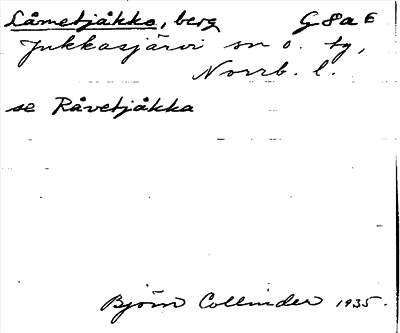 Låmetjåkko, berg G 8a E
Jukkasjärvi sn o. tg,
Norrb. l.
se Råvetjåkka
Björn Collinder 1935.